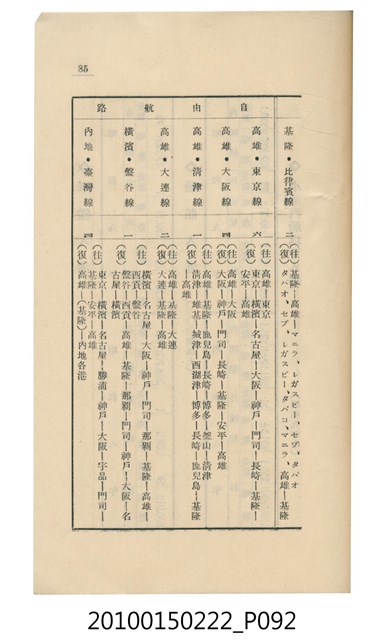 85
自由航路
基隆・比律賓線 二
(往)基隆—高雄—マニラ、レガスピー、セブ、タバオ
(復)タバオ、セブ、レガスピー、タバコ、マニラ、高雄—基隆
高雄・東京線 六
(往)高雄—東京
(復)東京—橫濱—名古屋—大阪—神戶—門司—長崎—基隆—
安平—高雄
高雄・大阪線 四
(往)高雄—大阪
(復)大阪—神戶—門司—長崎—基隆—安平—高雄
高雄・清津線 一
(往)高雄—基隆—鹿兒島—長崎—博多—釜山—清津
(復)清津—雄基—城津—西湖津—博多—長崎—鹿兒島—基隆
—高雄
高雄・大連線 二
(往)高雄—基隆—大連
(復)大連—基隆—高雄
橫濱・盤谷線 一
(往)橫濱—名古屋—大阪—神戶—門司—那覇—基隆—高雄—
西貢、盤谷
(復)盤谷—西貢—高雄—基隆—那覇—門司—神戶—大阪—名
古屋—橫濱
內地・臺灣線 四
(往)東京—橫濱—名古屋—勝浦—神戶—大阪—宇品—門司—
基隆—安平—高雄
(復)高雄—(基隆)—內地各港
20100150222_P092